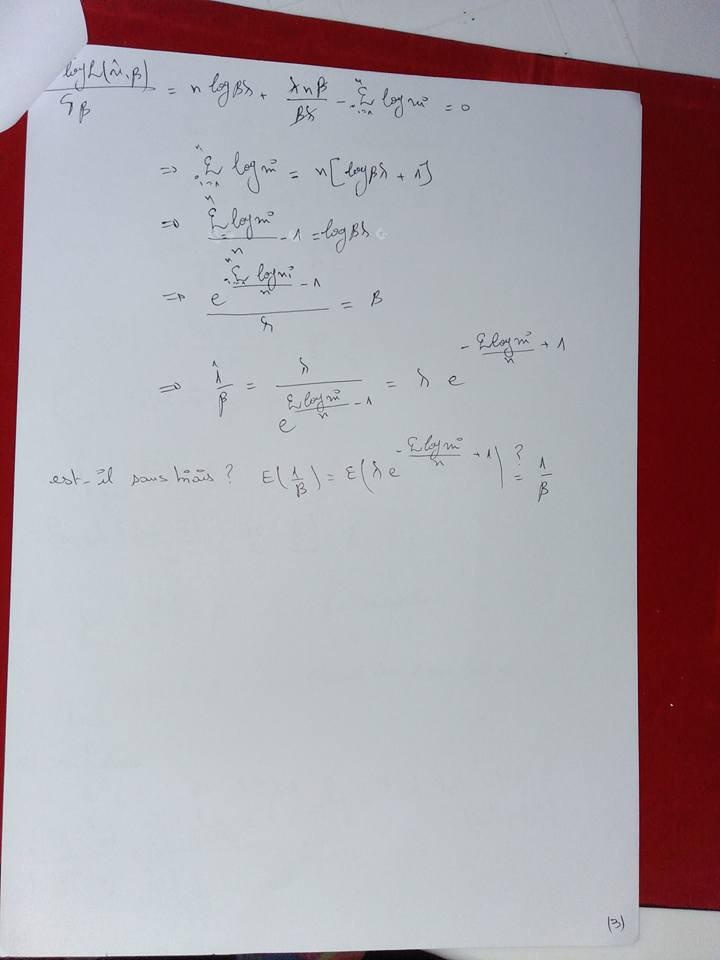 log L(x̂, β) / ∂β = n log βλ + λnβ / βλ - Σ_{i=1}^{n} log xi = 0
⇒ Σ_{i=1}^{n} log xi = n[log βλ + 1]
⇒ Σ^{n} log xi / n - 1 = log βλ
⇒ e^{Σ_{i=1}^{n} log xi / n - 1} / λ = β
⇒ 1̂/β = λ / e^{Σ log xi / n - 1} = λ e^{-Σ log xi / n + 1}
est-il sans biais ? E(1/β) = E(λ e^{-Σ log xi / n + 1}) =? 1/β
(3)